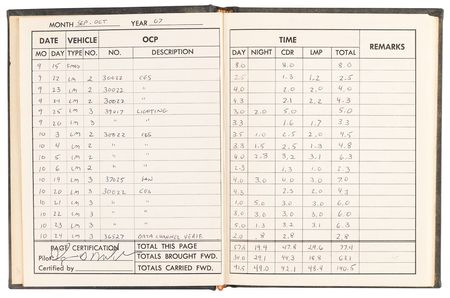 MONTH SEP. OCT YEAR 67
DATE VEHICLE OCP
MO DAY TYPE NO. NO. DESCRIPTION
9 15
9 22 LM 2 30022 CES
9 23 LM 2 30022 "
9 24 LM 2 30022 "
9 25 LM 3 39017 LIGHTING
9 26 LM 3 " "
10 3 LM 2 30022 CES
10 4 LM 2 " "
10 5 LM 2 " "
10 6 LM 2 " "
10 19 LM 3 37025
10 20 LM 3 30022 CES
10 21 LM 3 " "
10 22 LM 3 " "
10 23 LM 3 " "
10 24 LM 3 36527 DATA CHANNEL VERIF
PAGE CERTIFICATION
Pilot
Certified by
TOTAL THIS PAGE
TOTALS BROUGHT FWD.
TOTALS CARRIED FWD.
TIME REMARKS
DAY NIGHT CDR LMP TOTAL
8.0 8.0 8.0
2.5 1.3 1.2 2.5
4.0 2.0 2.0 4.0
4.3 2.1 2.2 4.3
3.0 2.0 5.0 5.0
3.3 1.6 1.7 3.3
3.5 1.0 2.5 2.0 4.5
3.3 1.5 2.5 1.3 4.8
4.0 2.3 3.2 3.1 6.3
2.3 1.3 1.0 2.3
4.0 3.0 4.0 3.0 7.0
4.3 2.3 2.0 4.3
1.0 5.0 3.0 3.0 6.0
3.0 3.0 3.0 3.0 6.0
5.0 1.3 3.2 3.1 6.3
2.0 .8 2.8 2.8
57.5 19.9 47.8 29.6 77.4